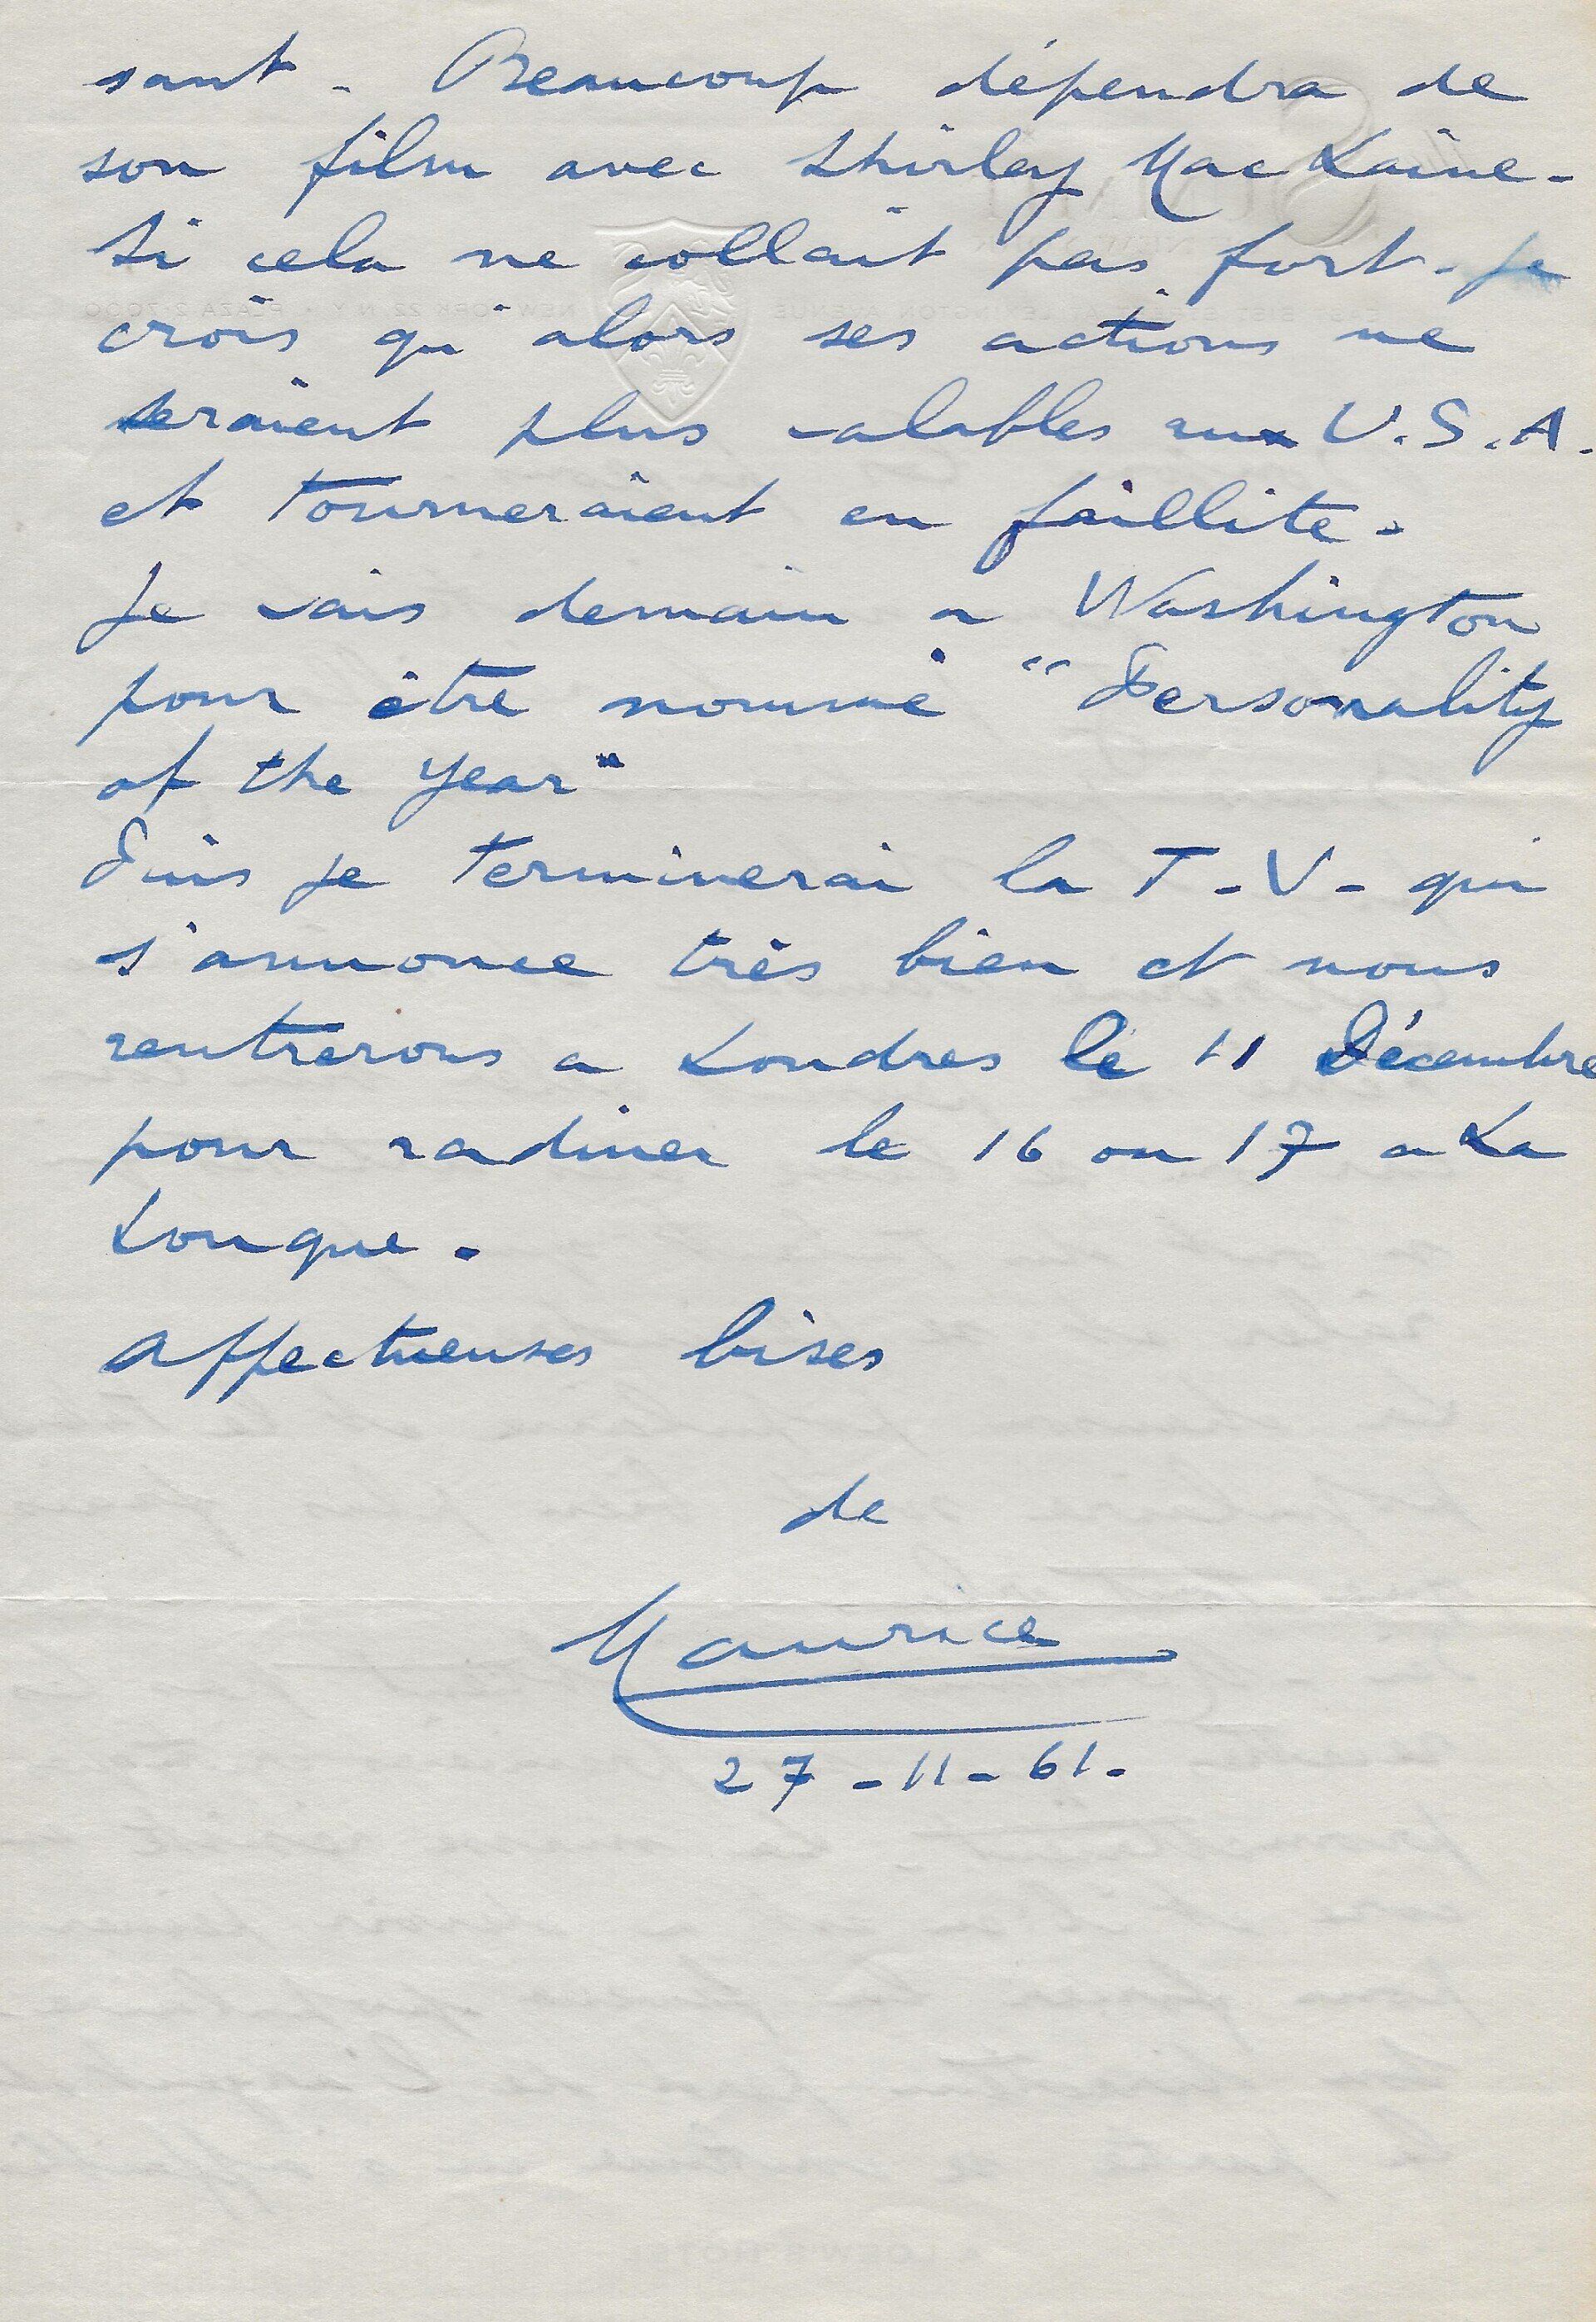 sant - Beaucoup dépendra de
son film avec Shirley Mac Laine -
Si cela ne collait pas fort - Je
crois qu'alors ses actions ne
seraient plus valables aux U.S.A.
et tourneraient en faillite -
Je vais demain a Washington
pour être nommé "Personality
of the Year"
Puis je terminerai la T-V- qui
s'annonce très bien et nous
rentrerons a Londres le 11 Décembre
pour radiner le 16 ou 17 a La
Louque.
Affectueuses bises
de
Maurice
27-11-61.